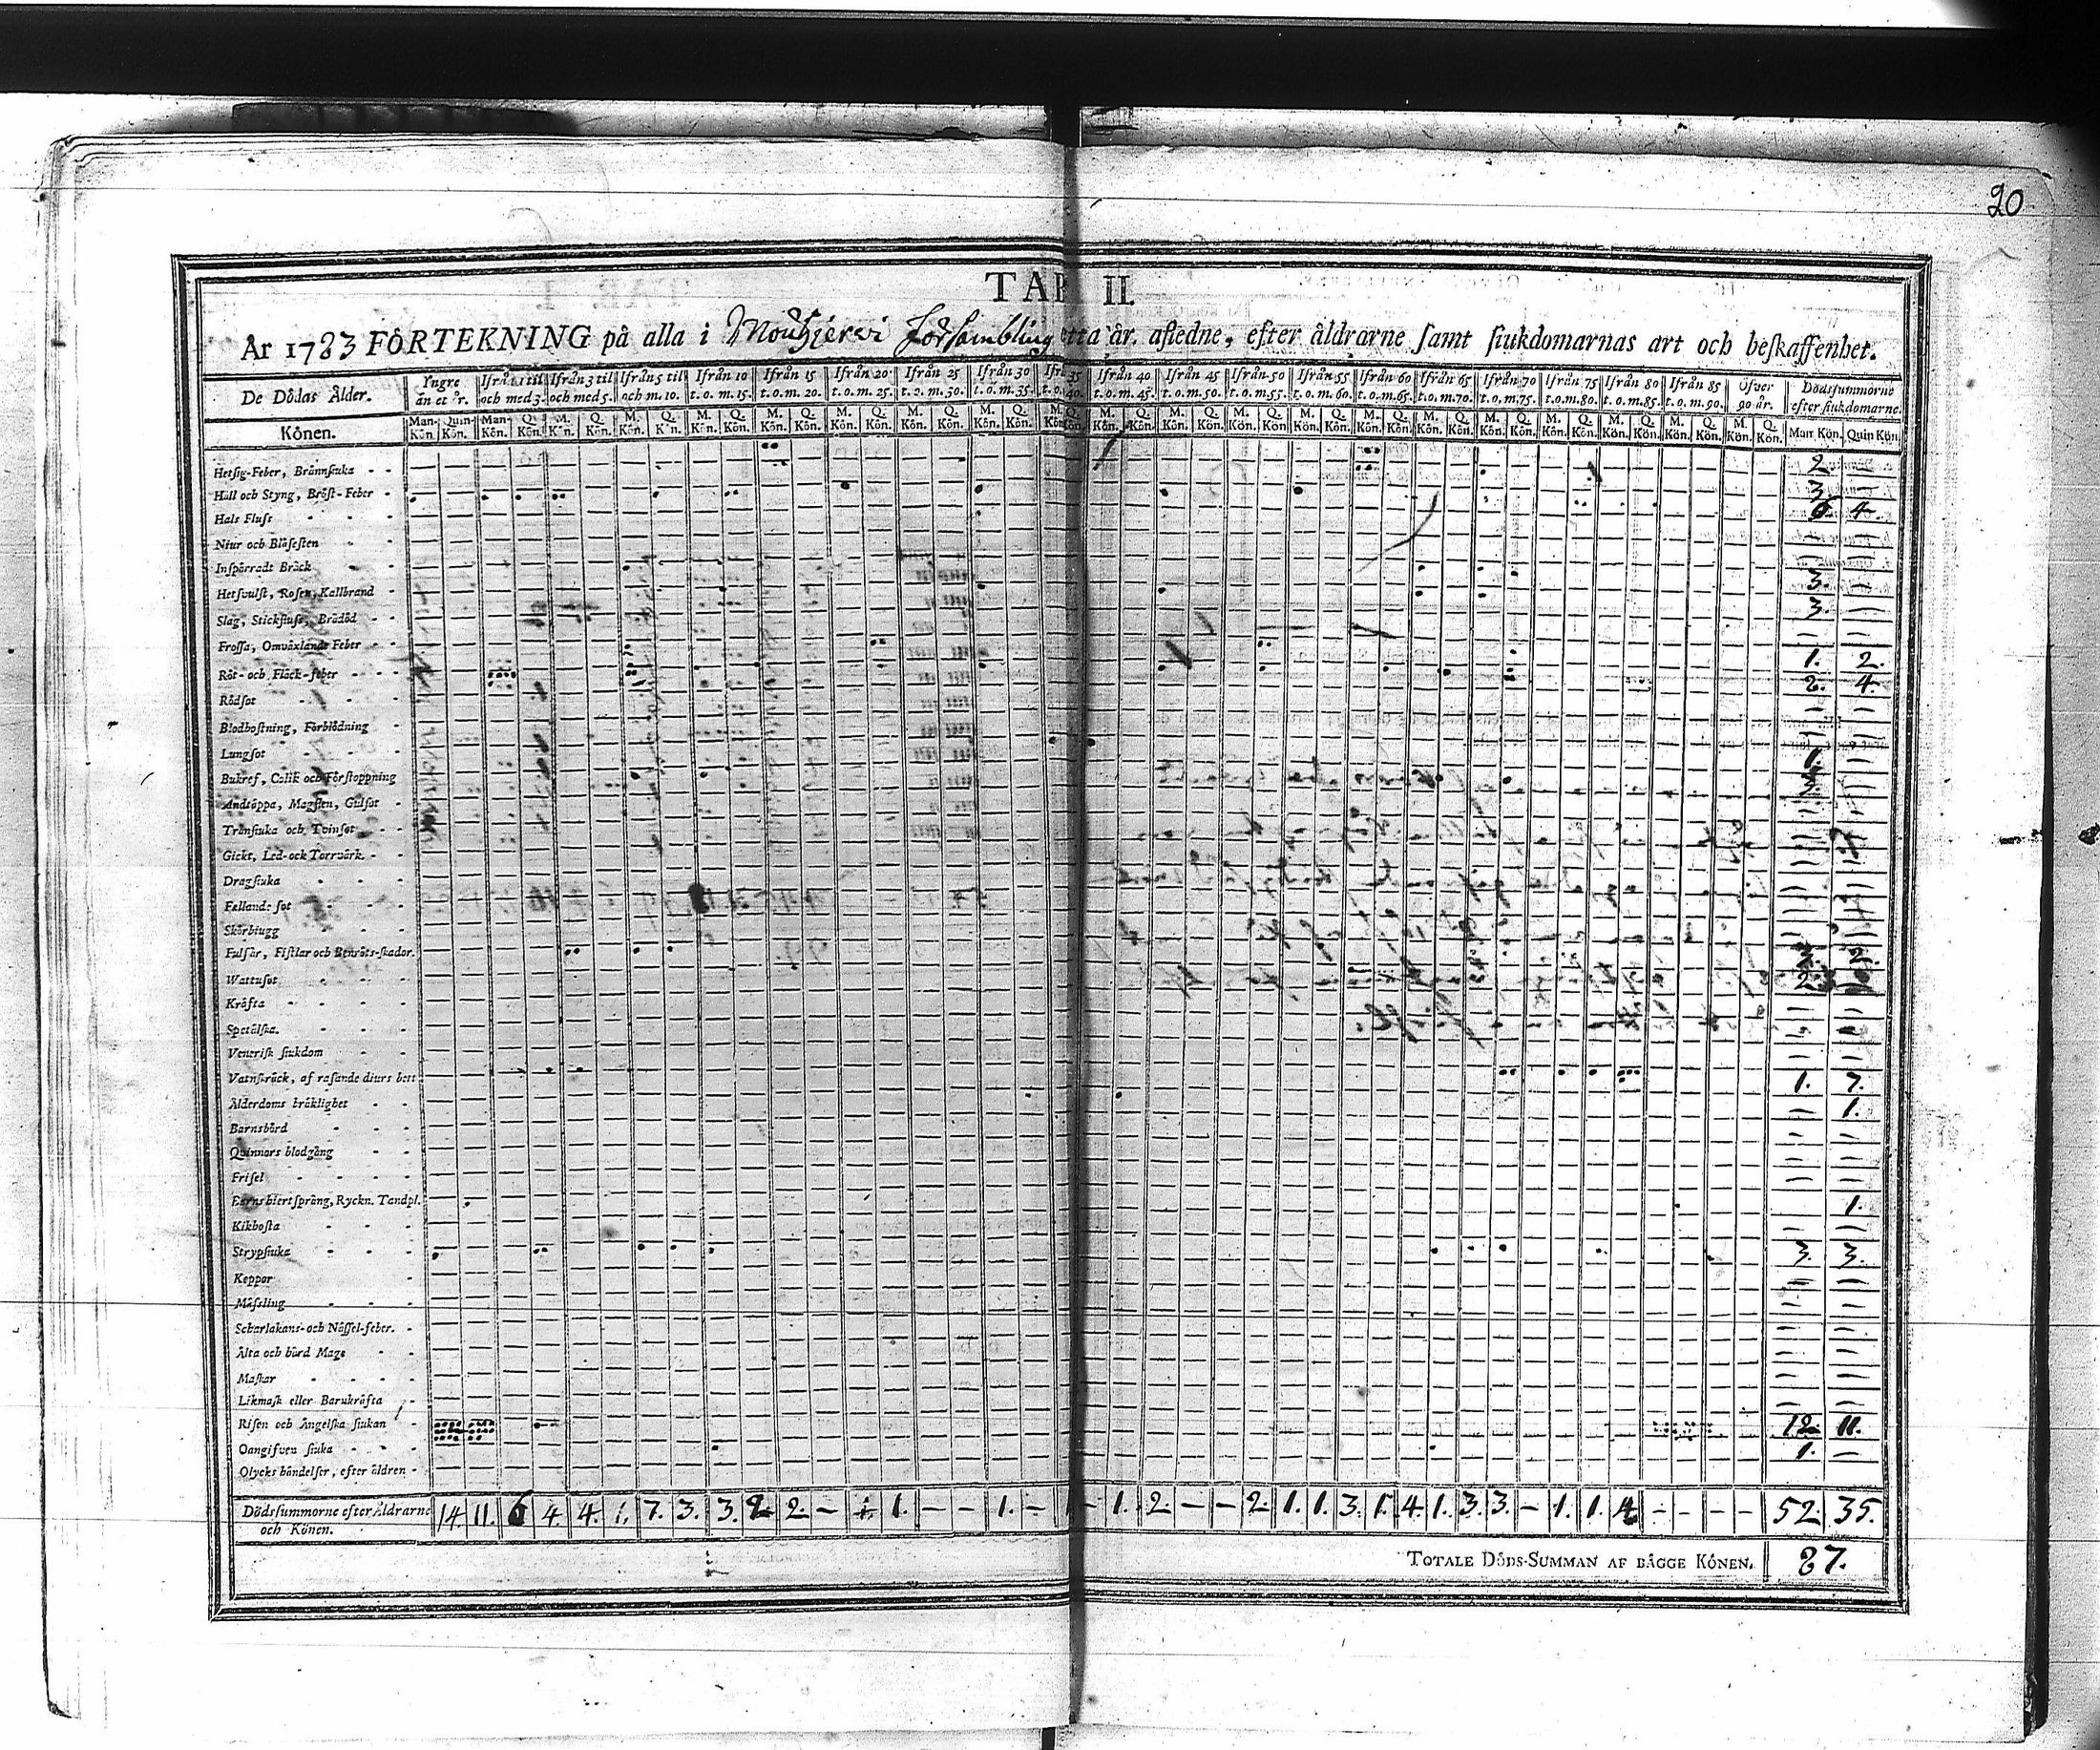 20
TAB II.
År 1783 FÖRTEKNING på alla i Mouhijerwi Försambling detta år afledne, efter åldrarne samt siukdomarnas art och beskaffenhet.
De Dödas Ålder. Yngre än et år. Ifrån 1 til och med 3. Ifrån 3 til och med 5. Ifrån 5 til och m. 10. Ifrån 10 t. o. m. 15. Ifrån 15 t. o. m. 20. Ifrån 20 t. o. m. 25. Ifrån 25 t. o. m. 30. Ifrån 30 t. o. m. 35. Ifrån 35 t. o. m. 40. Ifrån 40 t. o. m. 45. Ifrån 45 t. o. m. 50. Ifrån 50 t. o. m. 55. Ifrån 55 t. o. m. 60. Ifrån 60 t. o. m. 65. Ifrån 65 t. o. m. 70. Ifrån 70 t. o. m. 75. Ifrån 75 t. o. m. 80. Ifrån 80 t. o. m. 85. Ifrån 85 t. o. m. 90. Öfver 90 år. Dödssummorne efter siukdomarne.
Könen. Man-Kön. Quin-Kön. Man-Kön. Q. Kön. M. Kön. Q. Kön. M. Kön. Q. Kön. M. Kön. Q. Kön. M. Kön. Q. Kön. M. Kön. Q. Kön. M. Kön. Q. Kön. M. Kön. Q. Kön. M. Kön. Q. Kön. M. Kön. Q. Kön. M. Kön. Q. Kön. M. Kön. Q. Kön. M. Kön. Q. Kön. M. Kön. Q. Kön. M. Kön. Q. Kön. M. Kön. Q. Kön. M. Kön. Q. Kön. M. Kön. Q. Kön. M. Kön. Q. Kön. M. Kön. Q. Kön. Man Kön. Quin Kön.
Hetsig-Feber, Brännsiuka - - 2 —
Håll och Styng, Bröst-Feber - 4.
Hals Fluss - - -
Niur och Blåsesten - -
Inspärradt Bråck - - 3. —
Hetsvulst, Rosen, Kallbrand - 3. —
Slag, Stickfluss, Brådöd - -
Frossa, Omväxlande Feber - - 1. 2.
Röt- och Fläck-feber - - - 2. 4.
Rödsot - - -
Blodhostning, Förblödning -
Lungsot - - - 1.
Bukref, Colik och Förstoppning
Andtäppa, Magsten, Gulsot -
Trånsiuka och Tvinsot - -
Gickt, Led- ock Torrvärk. - -
Dragsiuka - - -
Fallande sot - - -
Skörbiugg - - -
Fulsår, Fistlar och Benröts-skador.
Wattusot - - - 2.
Kräfta - - - -
Spetälska. - - -
Venerisk siukdom - -
Vatnskräck, af rasande diurs bett
Ålderdoms bräklighet - - 1. 7.
Barnsbörd - - - — 1.
Quinnors blodgång - -
Frisel - - - -
Barns hiertsprång, Ryckn. Tandpl. — 1.
Kikhosta - - -
Strypsiuka - - - 3. 3.
Koppor -
Mässling - - -
Scharlakans- och Nässel-feber. -
Älta och hård Mage - -
Maskar - - - -
Likmask eller Barnkräfta -
Risen och Ängelska siukan - 12. 11.
Oangifven siuka - - - 1. —
Olycks händelser, efter äldren -
Dödssummorne efter Åldrarne och Könen. 14. 11. 6 4. 4. 1. 7. 3. 3. 2. 2. — 1. 1. — — 1. — 1 — 1. 2. — — 2. 1. 1. 3. 1. 4. 1. 3. 3. — 1. 1. 4 - - - - 52. 35.
TOTALE DÖDS-SUMMAN AF BÅGGE KÖNEN. 87.